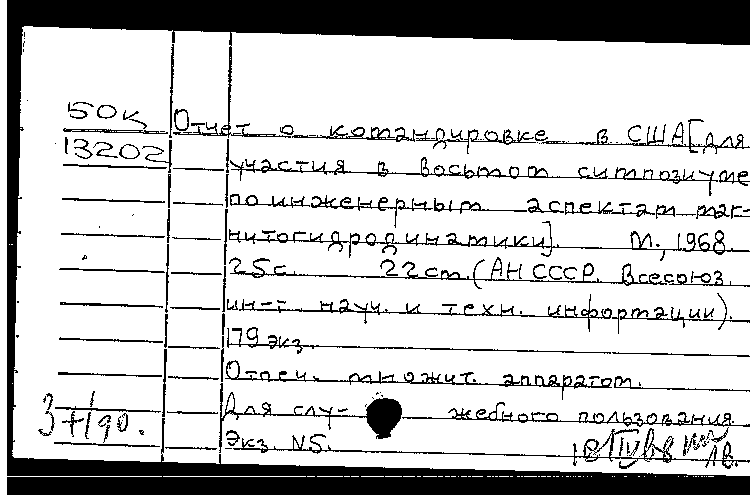 50к Отчет о командировке в США [для
13202 участия в восьмом симпозиуме
по инженерным аспектам маг-
нитогидродинамики]. М., 1968.
25с. 22см. (АН СССР. Всесоюз.
ин-т науч. и техн. информации).
179 экз.
Отпеч. множит. аппаратом.
Для слу- жебного пользования
Экз. N5.